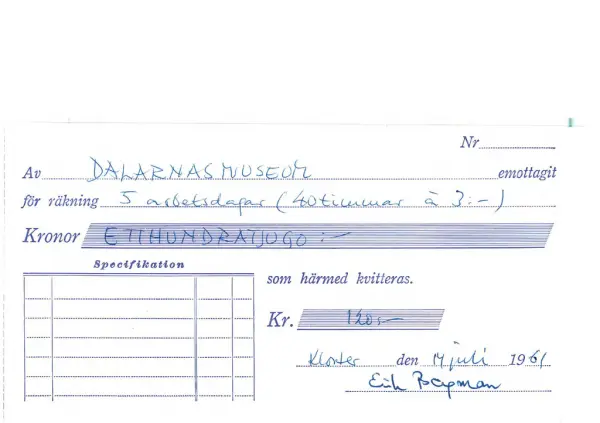 Nr
Av DALARNAS MUSEUM emottagit
för räkning 5 arbetsdagar (40 timmar à 3:-)
Kronor ETTHUNDRATJUGO:-
Specifikation
som härmed kvitteras.
Kr. 120:-
Kloster den 14 juli 1961
Erik